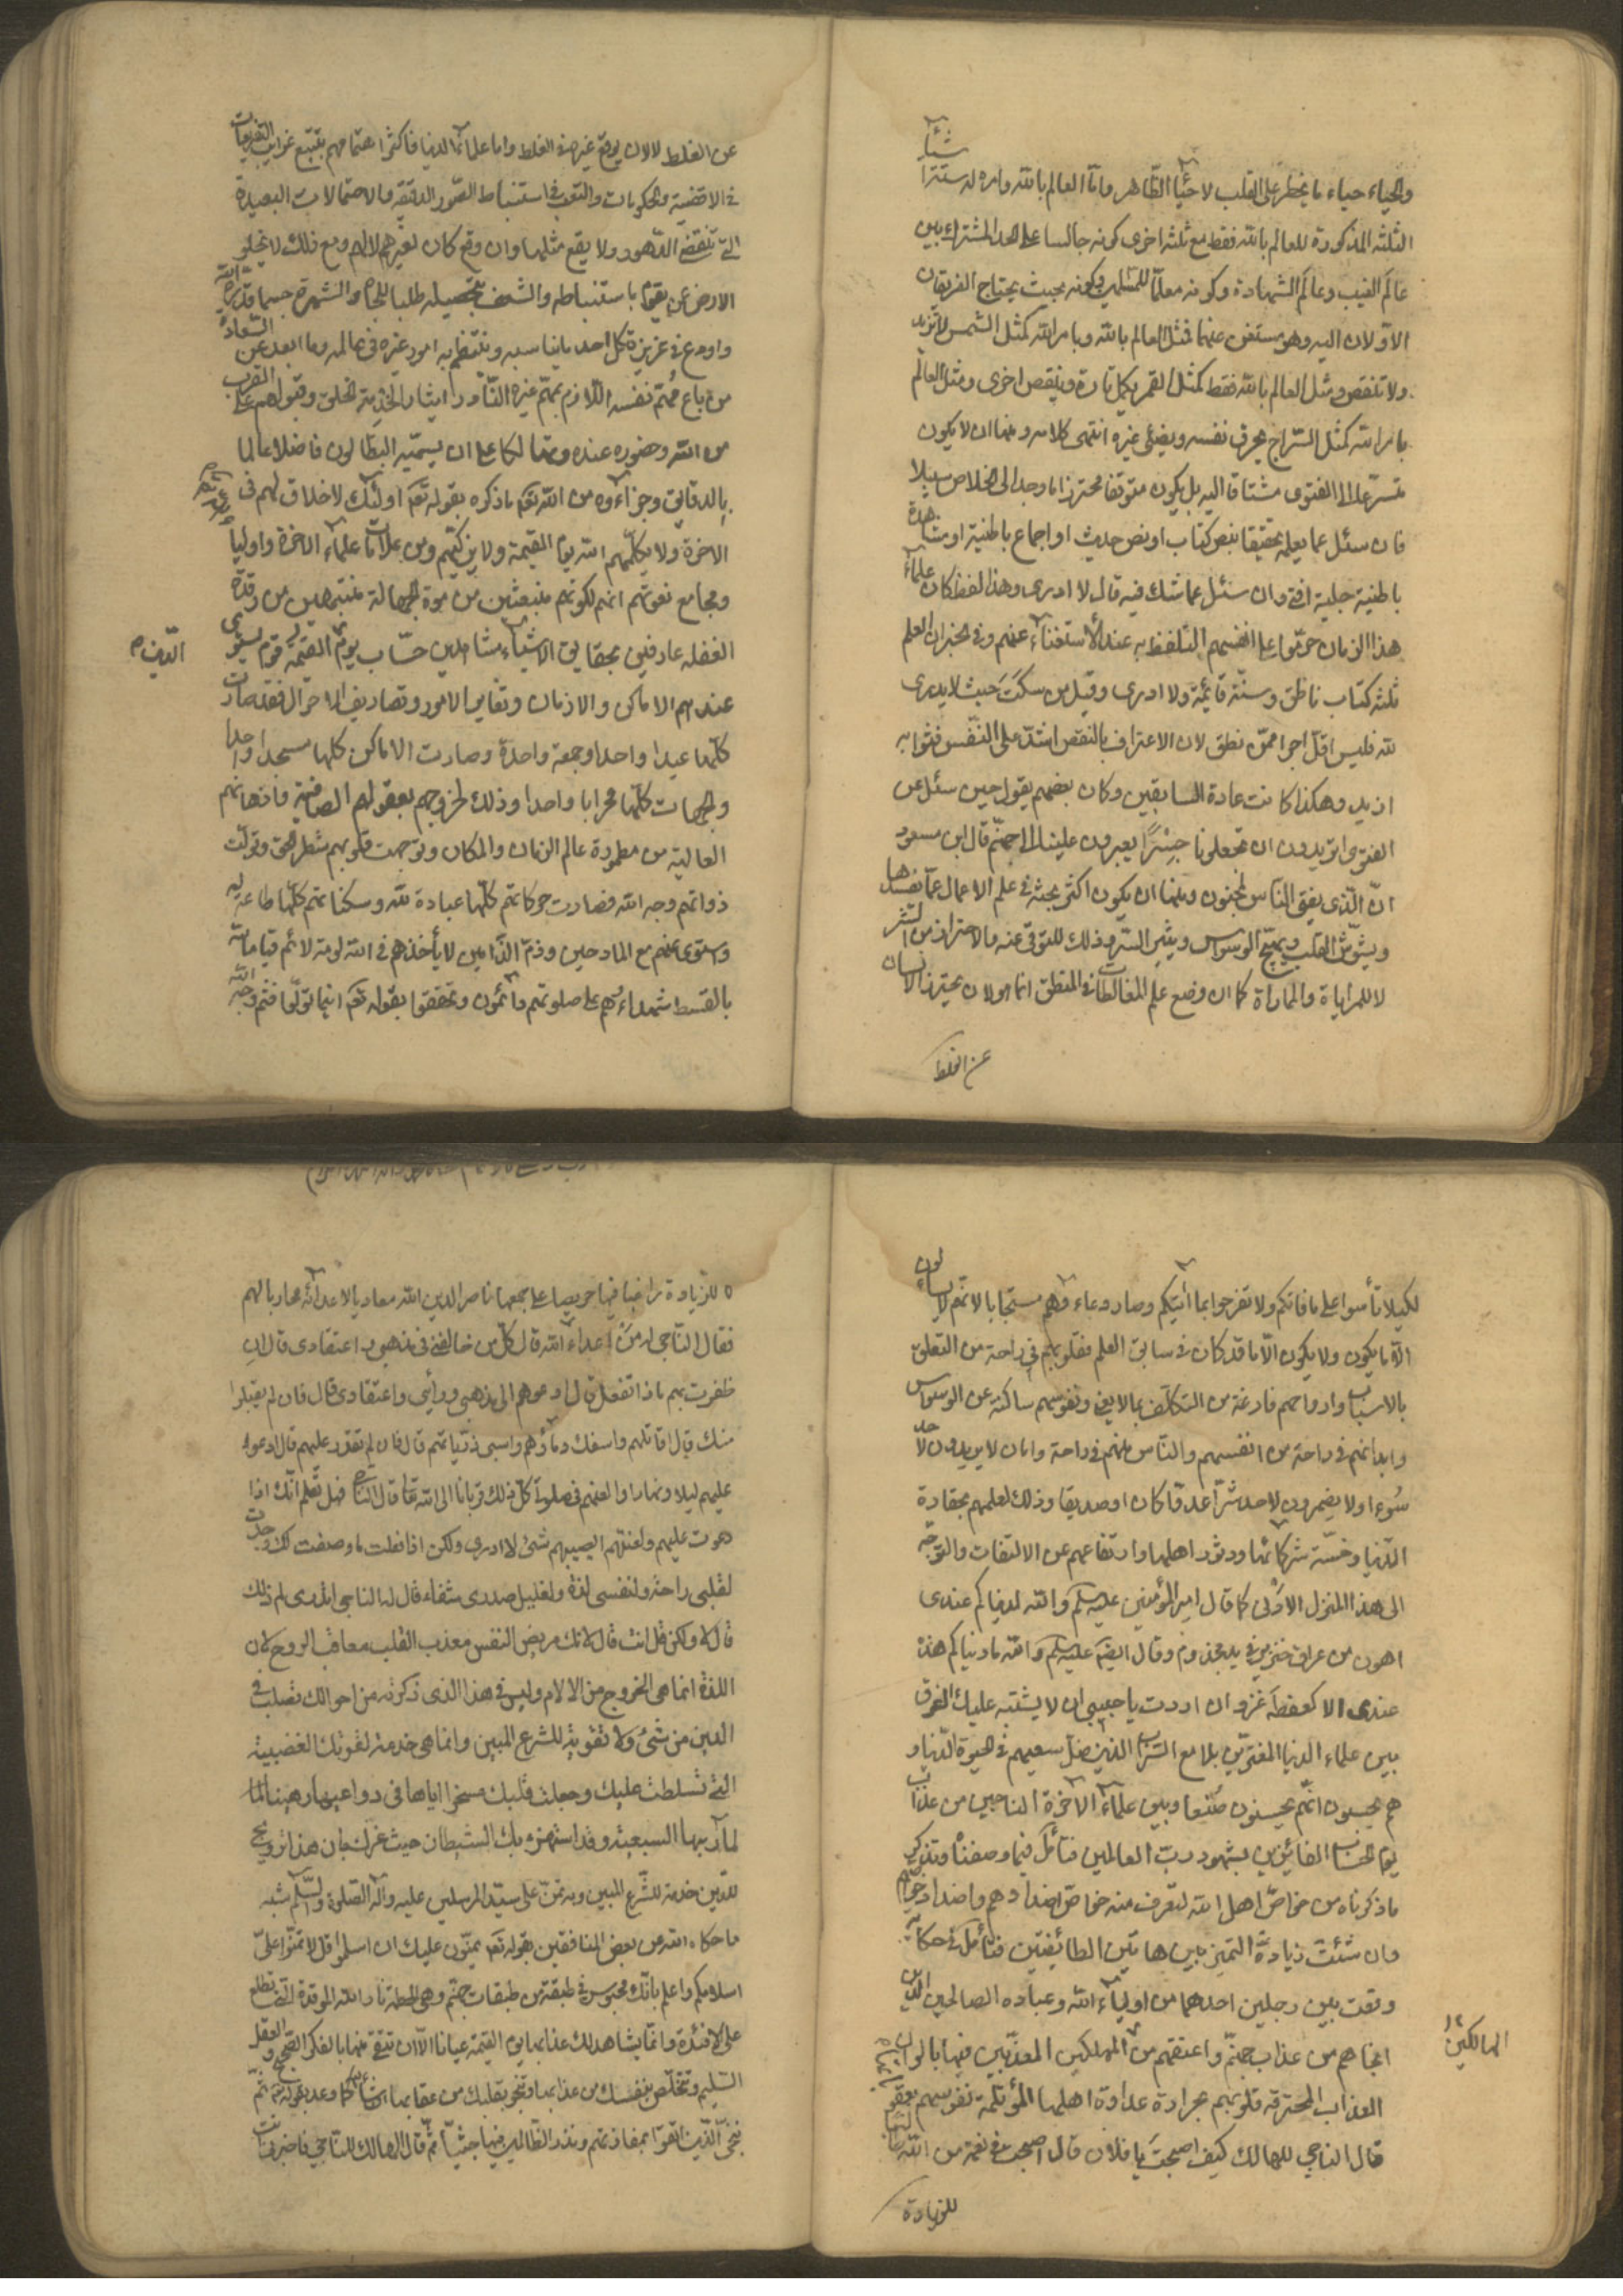 والحياء حياء ما يخطر على القلب لا حياء الظاهر واما العالم بالله وامره له ستة اشياء
الثلثة المذكورة للعالم بالله فقط مع ثلثة اخرى كونه جالسا على الحد المشترك بين
عالم الغيب وعالم الشهادة وكونه معلما للمسلمين وكونه بحيث يحتاج الفريقان
الاولان اليه وهو مستغن عنهما فمثل العالم بالله وبامر الله كمثل الشمس لا تزيد
ولا تنقص ومثل العالم بالله فقط كمثل القمر يكمل تارة وينقص اخرى ومثل العالم
بامر الله كمثل السراج يحرق نفسه ويضئ غيره انتهى كلامه ومنها ان لا يكون
متسرعا الى الفتوى مشتاقا اليه بل يكون متوقفا محترزا ما وجد الى الخلاص سبيلا
فان سئل عما يعلمه تحقيقا بنص كتاب او نص حديث او اجماع باطنية او مشاهدة
باطنية جلية افتى وان سئل عما شك فيه قال لا ادرى وهذا لفظ كان علماء
هذا الزمان حرموا على انفسهم التلفظ به عند الاستغناء عنهم وفى الخبر ان العلم
ثلثة كتاب ناطق وسنة قائمة ولا ادرى وقيل من سكت حيث لا يدرى
لله فليس اقل اجرا ممن نطق لان الاعتراف بالنقص اشد على النفس فثوابه
ازيد وهكذا كانت عادة السابقين وكان بعضهم يقول حين سئل عن
الفتوى اتريدون ان تجعلونا جسرا يعبرون علينا الى جهنم قال ابن مسعود
ان الذى يفتى الناس لمجنون ومنها ان يكون اكثر بحثه فى علم الاعمال عما يفسدها
ويشوش القلب ويهيج الوسواس ويثير الشر وذلك للتوقى عنه والاحتراز من الشر
لا للمراياة والمماراة كما ان وضع علم المغالطات فى المنطق انما هو لان يحترز الانسان
عن الغلط
عن الغلط لا لان يوقع غيره فى الغلط واما علماء الدنيا فاكثر اهتمامهم بتتبع غرايب التفريعات
فى الاقضية والحكومات والتعب فى استنباط الصور الدقيقة والاحتمالات البعيدة
التى تنقضى الدهور ولا يقع مثلها وان وقع كان لغيرهم لا لهم ومع ذلك لا يخلو
الارض عمن يقوم باستنباطه والشعف بتحصيله طلبا للجاه والشهرة حسبما قدره الله
واودع فى غريزة كل احد ما يناسبه وينتظم به امور غيره فى عالمه وما ابعد عن السعادة
من باع مهم نفسه اللازم بمهم غيره النادر ايثارا لخدمة الخلق وقبولهم على القرب
من الله وحضوره عنده وتهالكا على ان يسميه البطالون فاضلا عالما
بالدقايق وجزاءه من الله تعه ما ذكره بقوله تعه اولئك لا خلاق لهم فى
الاخرة ولا يكلمهم الله يوم القيمة ولا يزكيهم ومن علامات علماء الاخرة واولياء
ومجامع نعوتهم انهم لكونهم منبعثين من موت الجهالة متنبهين من رقدة
الغفله عارفين بحقايق الاشياء مشاهدين حساب يوم القيمة قوم يستوى
الدين ه
عندهم الاماكن والازمان وتغاير الامور وتصاريف الاحوال فقد صارت
كلها عيدا واحدا وجمعة واحدة وصارت الاماكن كلها مسجدا واحدا
والجهات كلها محرابا واحدا وذلك لخروجهم بعقولهم الصافية واذهانهم
العالية من مطمورة عالم الزمان والمكان وتوجهت قلوبهم شطر الحق وتولت
ذواتهم وجه الله فصارت حركاتهم كلها عبادة لله وسكناتهم كلها طاعة له
واستوى عندهم مدح المادحين وذم الذامين لا يأخذهم فى الله لومة لائم قياما لله
بالقسط شهداء وهم على صلوتهم دائمون وتحققوا بقوله تعه اينما تولوا فثم وجه الله
لكيلا تأسوا على ما فاتكم ولا تفرحوا بما آتيكم وصار دعاءهم مستجابا لانهم لا يسألون
الا ما يكون ولا يكون الا ما قد كان فى سابق العلم فقلوبهم فى راحة من التعلق
بالاسباب وارواحهم فارغة من التكلف بما لا يعنى ونفوسهم ساكنة عن الوسواس
وابدانهم فى راحة من انفسهم والناس منهم فى راحة وامان لا يريدون لاحد
سوءا ولا يضمرون لاحد شرا عدوا كان او صديقا وذلك لعلمهم بحقارة
الدنيا وخسة شركائها ودثور اهلها وارتفاعهم عن الالتفات والتوجه
الى هذا المنزل الادنى كما قال امير المؤمنين عليه سلم والله لدنياكم عندى
اهون من عراق خنزير فى يد مجذوم وقال ايضا عليه سلم والله ما دنياكم هذه
عندى الا كعفطة عنز وان اردت يا حبيبى ان لا يشتبه عليك الفرق
بين علماء الدنيا المغترين بلامع السراب الذين ضل سعيهم فى الحيوة الدنيا و
هم يحسبون انهم يحسنون صنعا وبين علماء الاخرة الناجين من عذاب
يوم الحساب الفائزين بشهود رب العالمين فتأمل فيما وصفنا وتذكر
ما ذكرناه من خواص اهل الله لتعرف منه خواص اضدادهم واضداد خواصهم
وان شئت زيادة التميز بين هاتين الطائفتين فتأمل فى حكاية
وقعت بين رجلين احدهما من اولياء الله وعباده الصالحين الذين
انجاهم من عذاب جهنم واعتقهم من المهلكين المعذبين فيها بالوان
الهالكين
العذاب المحترقه قلوبهم بحرارة عداوة اهلها المؤتلمة نفوسهم بعقوبتها
قال الناجى للهالك كيف اصبحت يا فلان قال اصبحت فى نعمة من الله طالبا
للزيادة
ه للزيادة راغبا فيها حريصا على جمعها ناصرا لدين الله معاديا لاعدائه محاربا لهم
فقال الناجى له من اعداء الله قال كل من خالفنى فى مذهبى و اعتقادى قال ان
ظفرت بهم ماذا تفعل قال ادعوهم الى مذهبى ورأيى واعتقادى قال فان لم يقبلوا
منك قال اقاتلهم واسفك دماءهم واسبى ذرياتهم قال فان لم تقدر عليهم قال ادعو
عليهم ليلا ونهارا والعنهم فى صلوة كل ذلك قربانا الى الله تعا قال الناجى فهل تعلم انك اذا
دعوت عليهم ولعنتهم ايصيبهم شئ قال لا ادرى ولكن اذا فعلت ما وصفت لك وجدت
لقلبى راحة ولنفسى لذة ولغليل صدرى شفاء قال له الناجى اتدرى لم ذلك
قال لا ولكن قل انت قال لانك مريض النفس معذب القلب معاقب الروح لان
اللذة انما هى الخروج من الالام وليس فى هذا الذى ذكرته من احوالك تصلب فى
الدين من شئ ولا تقوية للشرع المبين وانما هى خدمة لقوتك الغضبية
التى تسلطت عليك وجعلت قلبك مسخرا اياها فى دواعيها رهينا لها
لمآربها السبعية وقد استهزء بك الشيطان حيث غرك بان هذا ترويج
للدين خدمة للشرع المبين وبه تمن على سيد المرسلين عليه وآله الصلوة والسلام شبه
ما حكاه الله عن بعض المنافقين بقوله تعه يمنون عليك ان اسلموا قل لا تمنوا على
اسلامكم واعلم بانك محبوس فى طبقة من طبقات جهنم وهى الحطمة نار الله الموقدة التى تطلع
على الافئدة وانما يشاهد لك عذابها يوم القيمة عيانا الا ان تتقى منها بالفكر الصحيح والعقل
السليم وتتخلص بنفسك من عذابها وتنجو بقلبك من عقابها انشاء الله كما وعد بقوله ثم
ننجى الذين اتقوا بمفازتهم ونذر الظالمين فيها جثيا ثم قال الهالك للناجى فاخبرنى انت